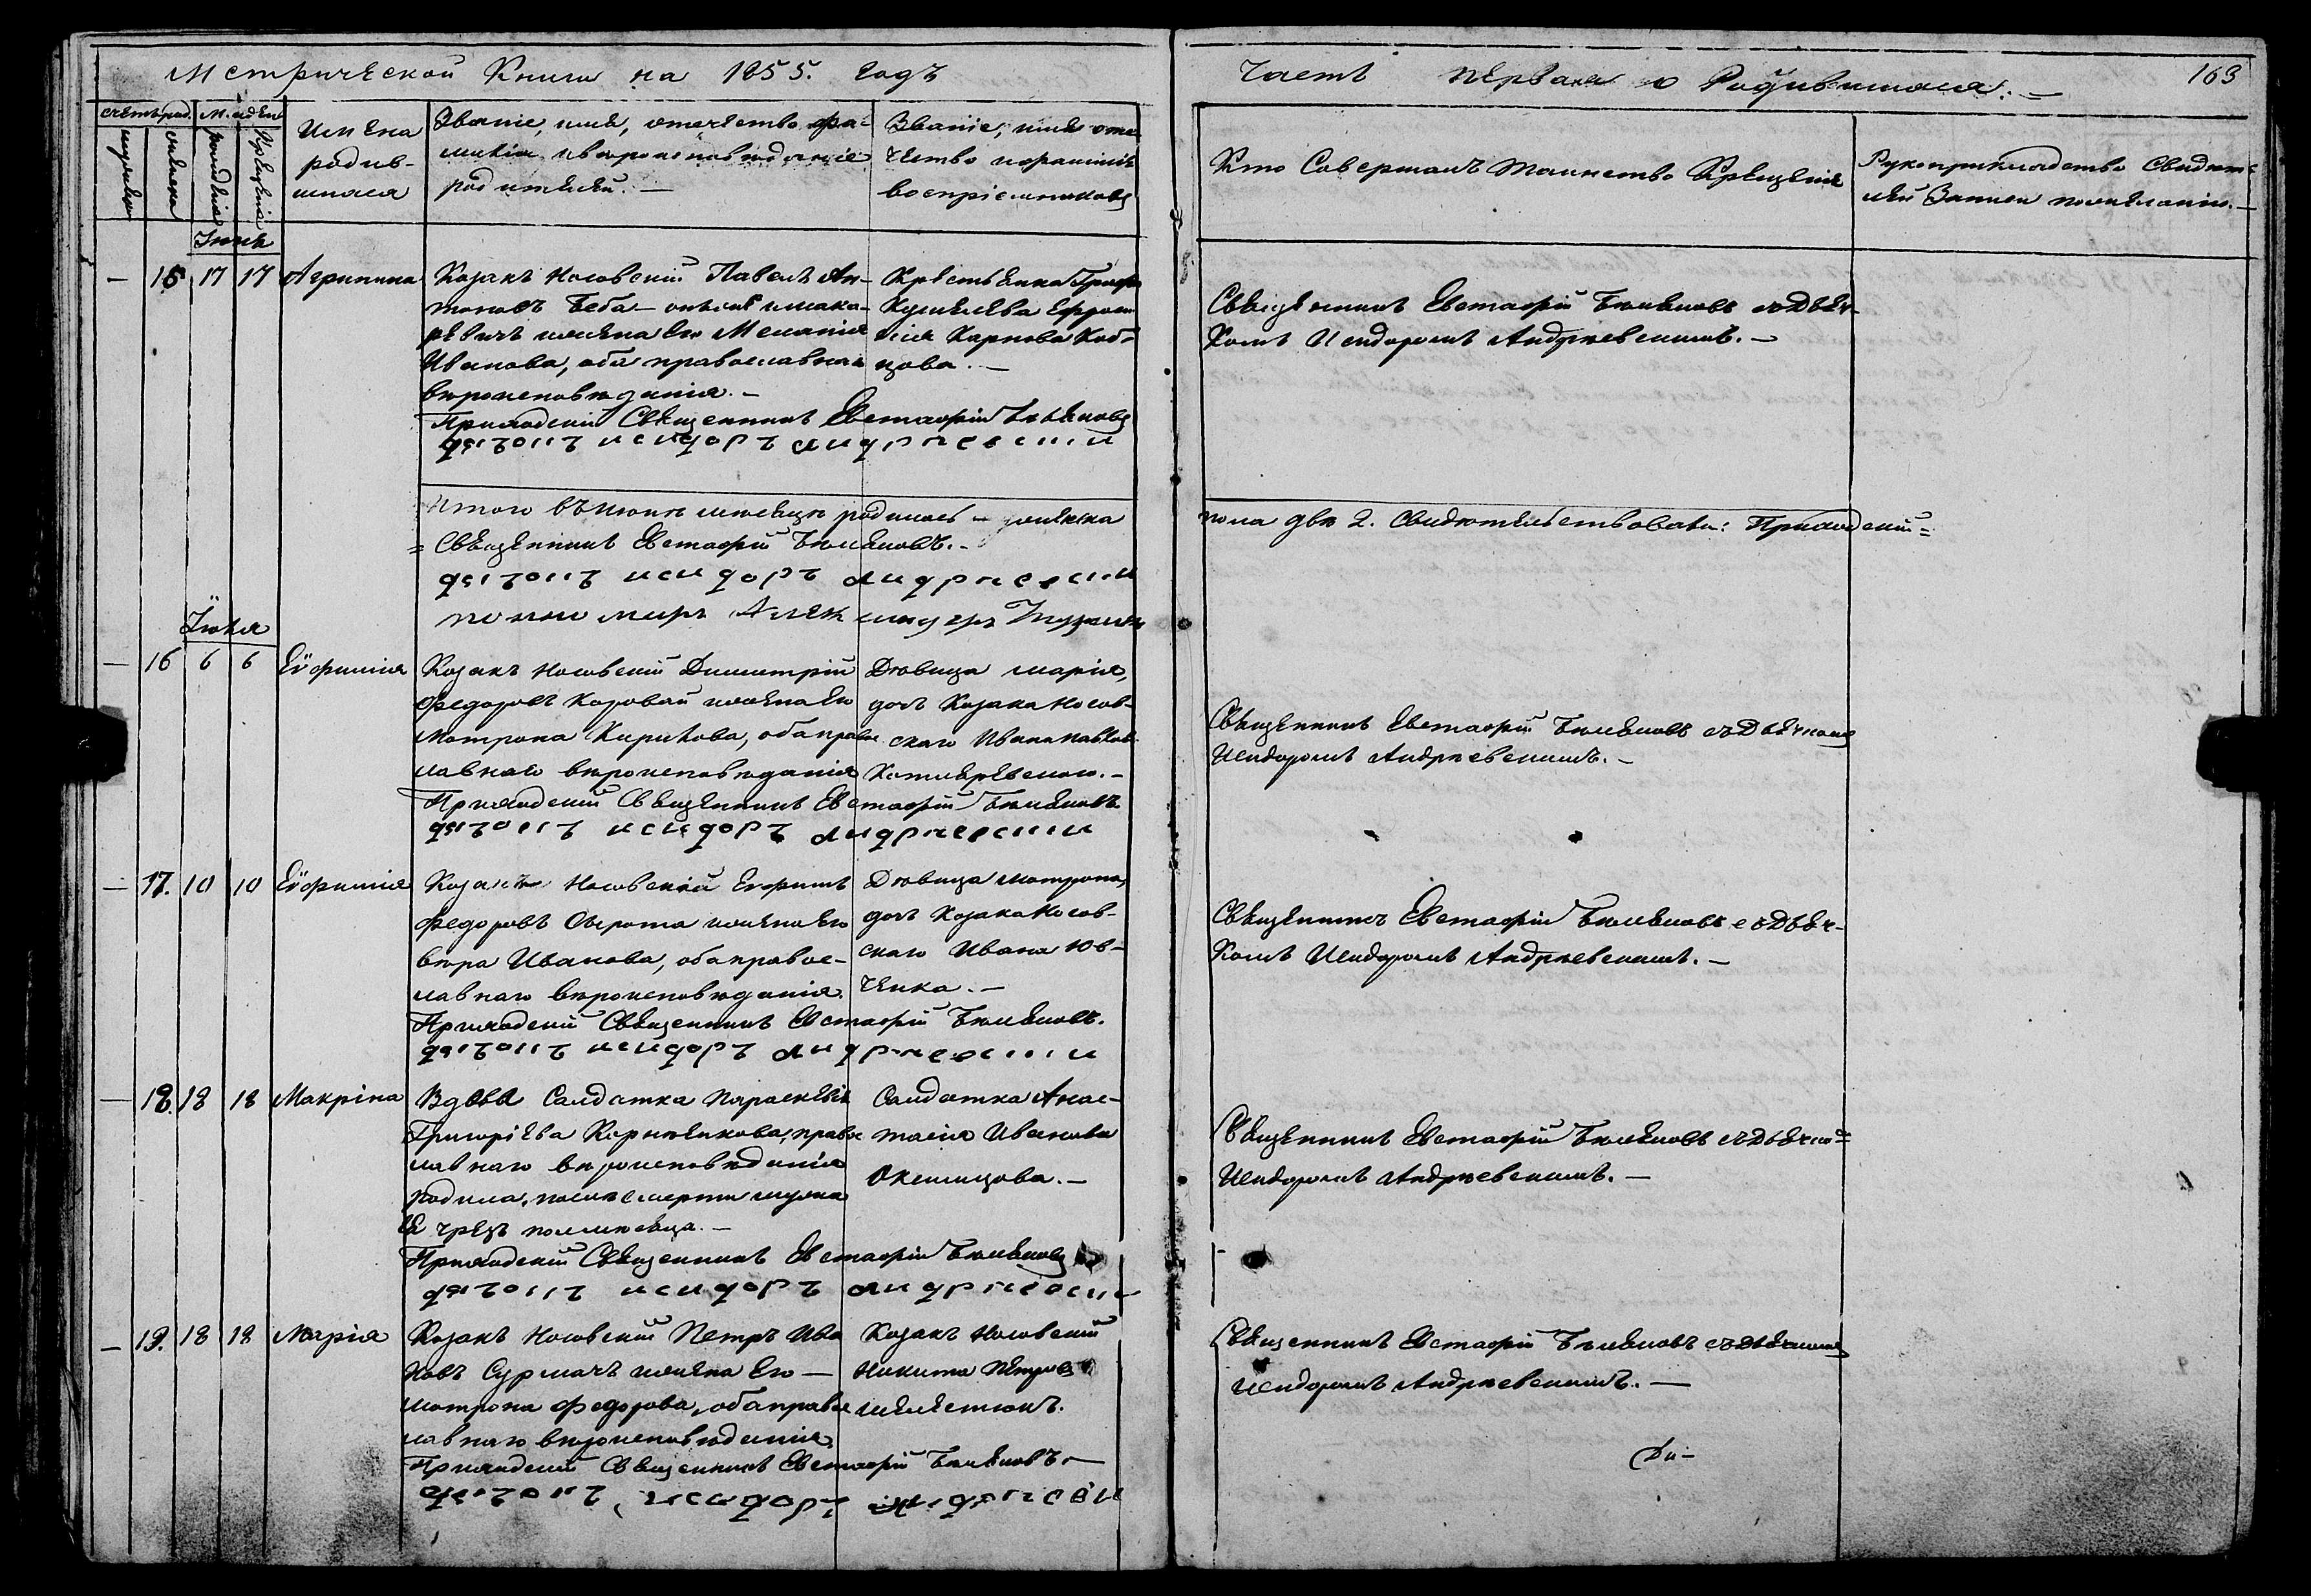 Метрической Книги на 1855. годъ
Часть первая о Родившихся.
163
счетъ род.
М. и день
мужеска
женска
рожденія
крещенія
Имена
родив-
шихся
Званіе, имя, отчество, фа-
милія и вероисповеданіе
родителей. —
Званіе, имя отче
чество и фамилія
воспріемниковъ
Кто Совершалъ таинство Крещенія
Рукоприкладство Свидете
лей Записи по желанію. —
Іюнь
— 15 17 17 Агрипина
Козакъ Носовскій Павелъ Ан-
тоновъ Беба —
жена его Меланія
Иванова, оба православнаго
вѣроисповѣданія. —
Приходскій Священникъ Евстафій Бѣлѣновъ
дьячокъ исидоръ андріевскій
Крестьянка Графа
Кушелева Ефроси
нія Карпова Коб-
цова. —
Священникъ Евстафій Бѣлѣновъ съ Дьяч-
комъ Исидоромъ Андріевскимъ. —
Итого въ июнѣ мѣсяцѣ родилось — женска
пола двѣ 2. Свидѣтельствовали: Приходскій =
= Священникъ Евстафій Бѣлѣновъ. -
дьячокъ исидоръ андріевскій
пономаръ Александеръ
Іюля
— 16 6 6 Евфимія
Козакъ Носовскій Димитрій
Федоровъ Коровай жена его
Мотрона Кирилова, оба право
славнаго вѣроисповѣданія
Приходскій Священникъ Евстафій Бѣлѣновъ
дьячокъ исидоръ андріевскій
Дѣвица Марія,
дочь Козака Носов-
скаго Ивана Павлов
Котляревскаго. —
Священникъ Евстафій Бѣлѣновъ съ Дьячкомъ
Исидоромъ Андріевскимъ. —
— 17. 10 10 Евфимія
Козакъ Носовскій Ефимъ
Федоровъ Сирота жена его
Вѣра Иванова, оба правос-
лавнаго вѣроисповѣданія.
Приходскій Священникъ Евстафій Бѣлѣновъ.
дьячокъ исидоръ андріевскій
Дѣвица Мотрона,
дочь Козака Носов-
скаго Ивана Юв-
ченка. —
Священникъ Евстафій Бѣлѣновъ съ Дьяч-
комъ Исидоромъ Андріевскимъ. —
— 18. 18 18 Макріна
Вдова Салдатка Параскевія
Григоріева Корнѣенкова, право
славнаго вѣроисповѣданія
родила, послѣ смерти мужа
ея чрезъ полмѣсяца. —
Приходскій Священникъ Евстафій Бѣлѣновъ
дьячокъ исидоръ андріевскій
Салдатка Анас-
тасія Иванова
Окснищова. —
Священникъ Евстафій Бѣлѣновъ съ Дьячкомъ
Исидоромъ Андріевскимъ. —
— 19. 18 18 Марія
Козакъ Носовскій Петръ Ива
новъ Сурмачъ жена его —
Мотрона Федорова, оба право
славнаго вѣроисповѣданія,
Приходскій Священникъ Евстафій Бѣлѣновъ —
дьячокъ исидоръ андріевскій
Козакъ Носовскій
Никита Петровъ
Шелестюкъ.
Священникъ Евстафій Бѣлѣновъ съ Дьячкомъ
Исидоромъ Андріевскимъ. —